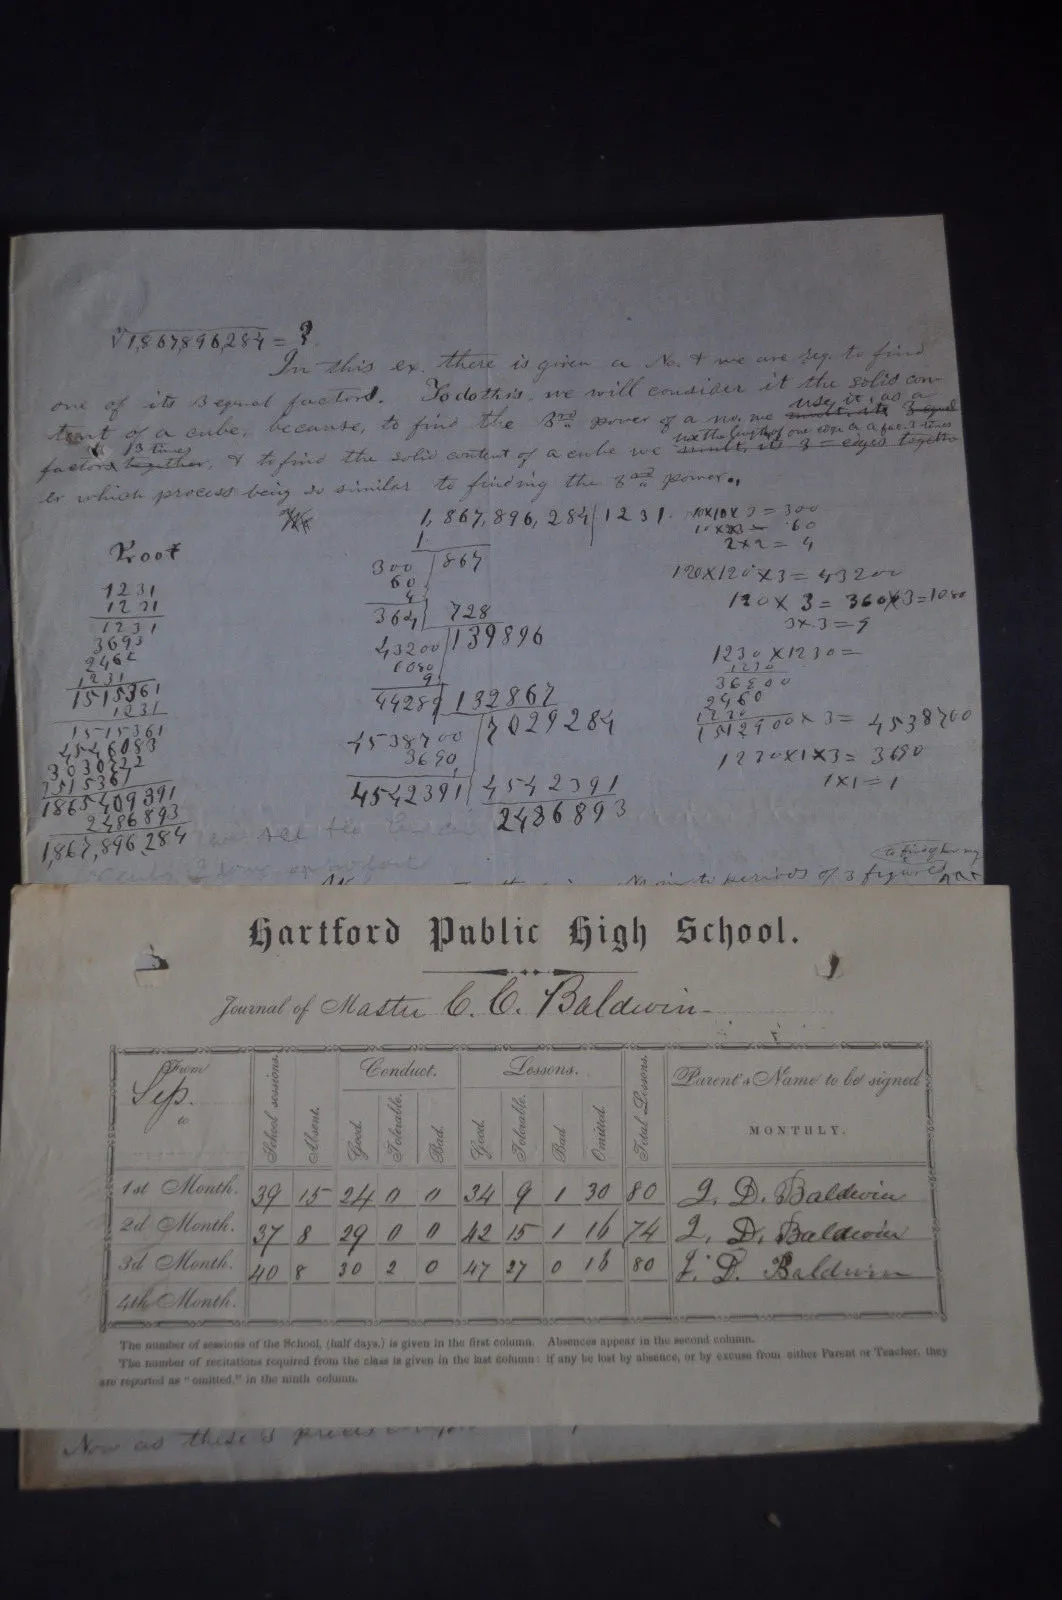 ∛1,867,896,284 = ?
In this ex. there is given a No. & we are req. to find
one of its 3 equal factors. To do this, we will consider it the solid con-
tent of a cube, because, to find the 3rd power of a no. we use it, as a
factor 3 times together, & to find the solid content of a cube we use the length of one edge as a fac. 3 times
er which process being so similar to finding the 3rd power.
Root
1231
1231
1231
3693
2462
1231
1515361
1231
1515361
4546083
3030722
1515361
1865409391
2486893
1,867,896,284
1,867,896,284 | 1231.
1
300 | 867
60
4
364 | 728
43200 | 139896
1080
9
44289 | 132867
4538700 | 7029284
3690
4542391 | 4542391
2486893
10x10x3 = 300
10x2x3 = 60
2x2 = 4
120x120x3 = 43200
120x3 = 360x3 = 1080
3x3 = 9
1230x1230 =
1230
36900
2460
1230
1512900 x 3 = 4538700
1230x1x3 = 3690
1x1 = 1
periods of 3 figures
Hartford Public High School.
Journal of Master C. C. Baldwin
From Sep. to
School sessions. Absent. Conduct. Good. Tolerable. Bad. Lessons. Good. Tolerable. Bad Omitted. Total Lessons. Parent's Name to be signed MONTHLY.
1st Month. 39 15 24 0 0 34 9 1 30 80 J. D. Baldwin
2d Month. 37 8 29 0 0 42 15 1 16 74 J. D. Baldwin
3d Month. 40 8 30 2 0 47 27 0 16 80 J. D. Baldwin
4th Month.
The number of sessions of the School, (half days,) is given in the first column. Absences appear in the second column.
The number of recitations required from the class is given in the last column: if any be lost by absence, or by excuse from either Parent or Teacher, they
are reported as "omitted," in the ninth column.
Now as these 3